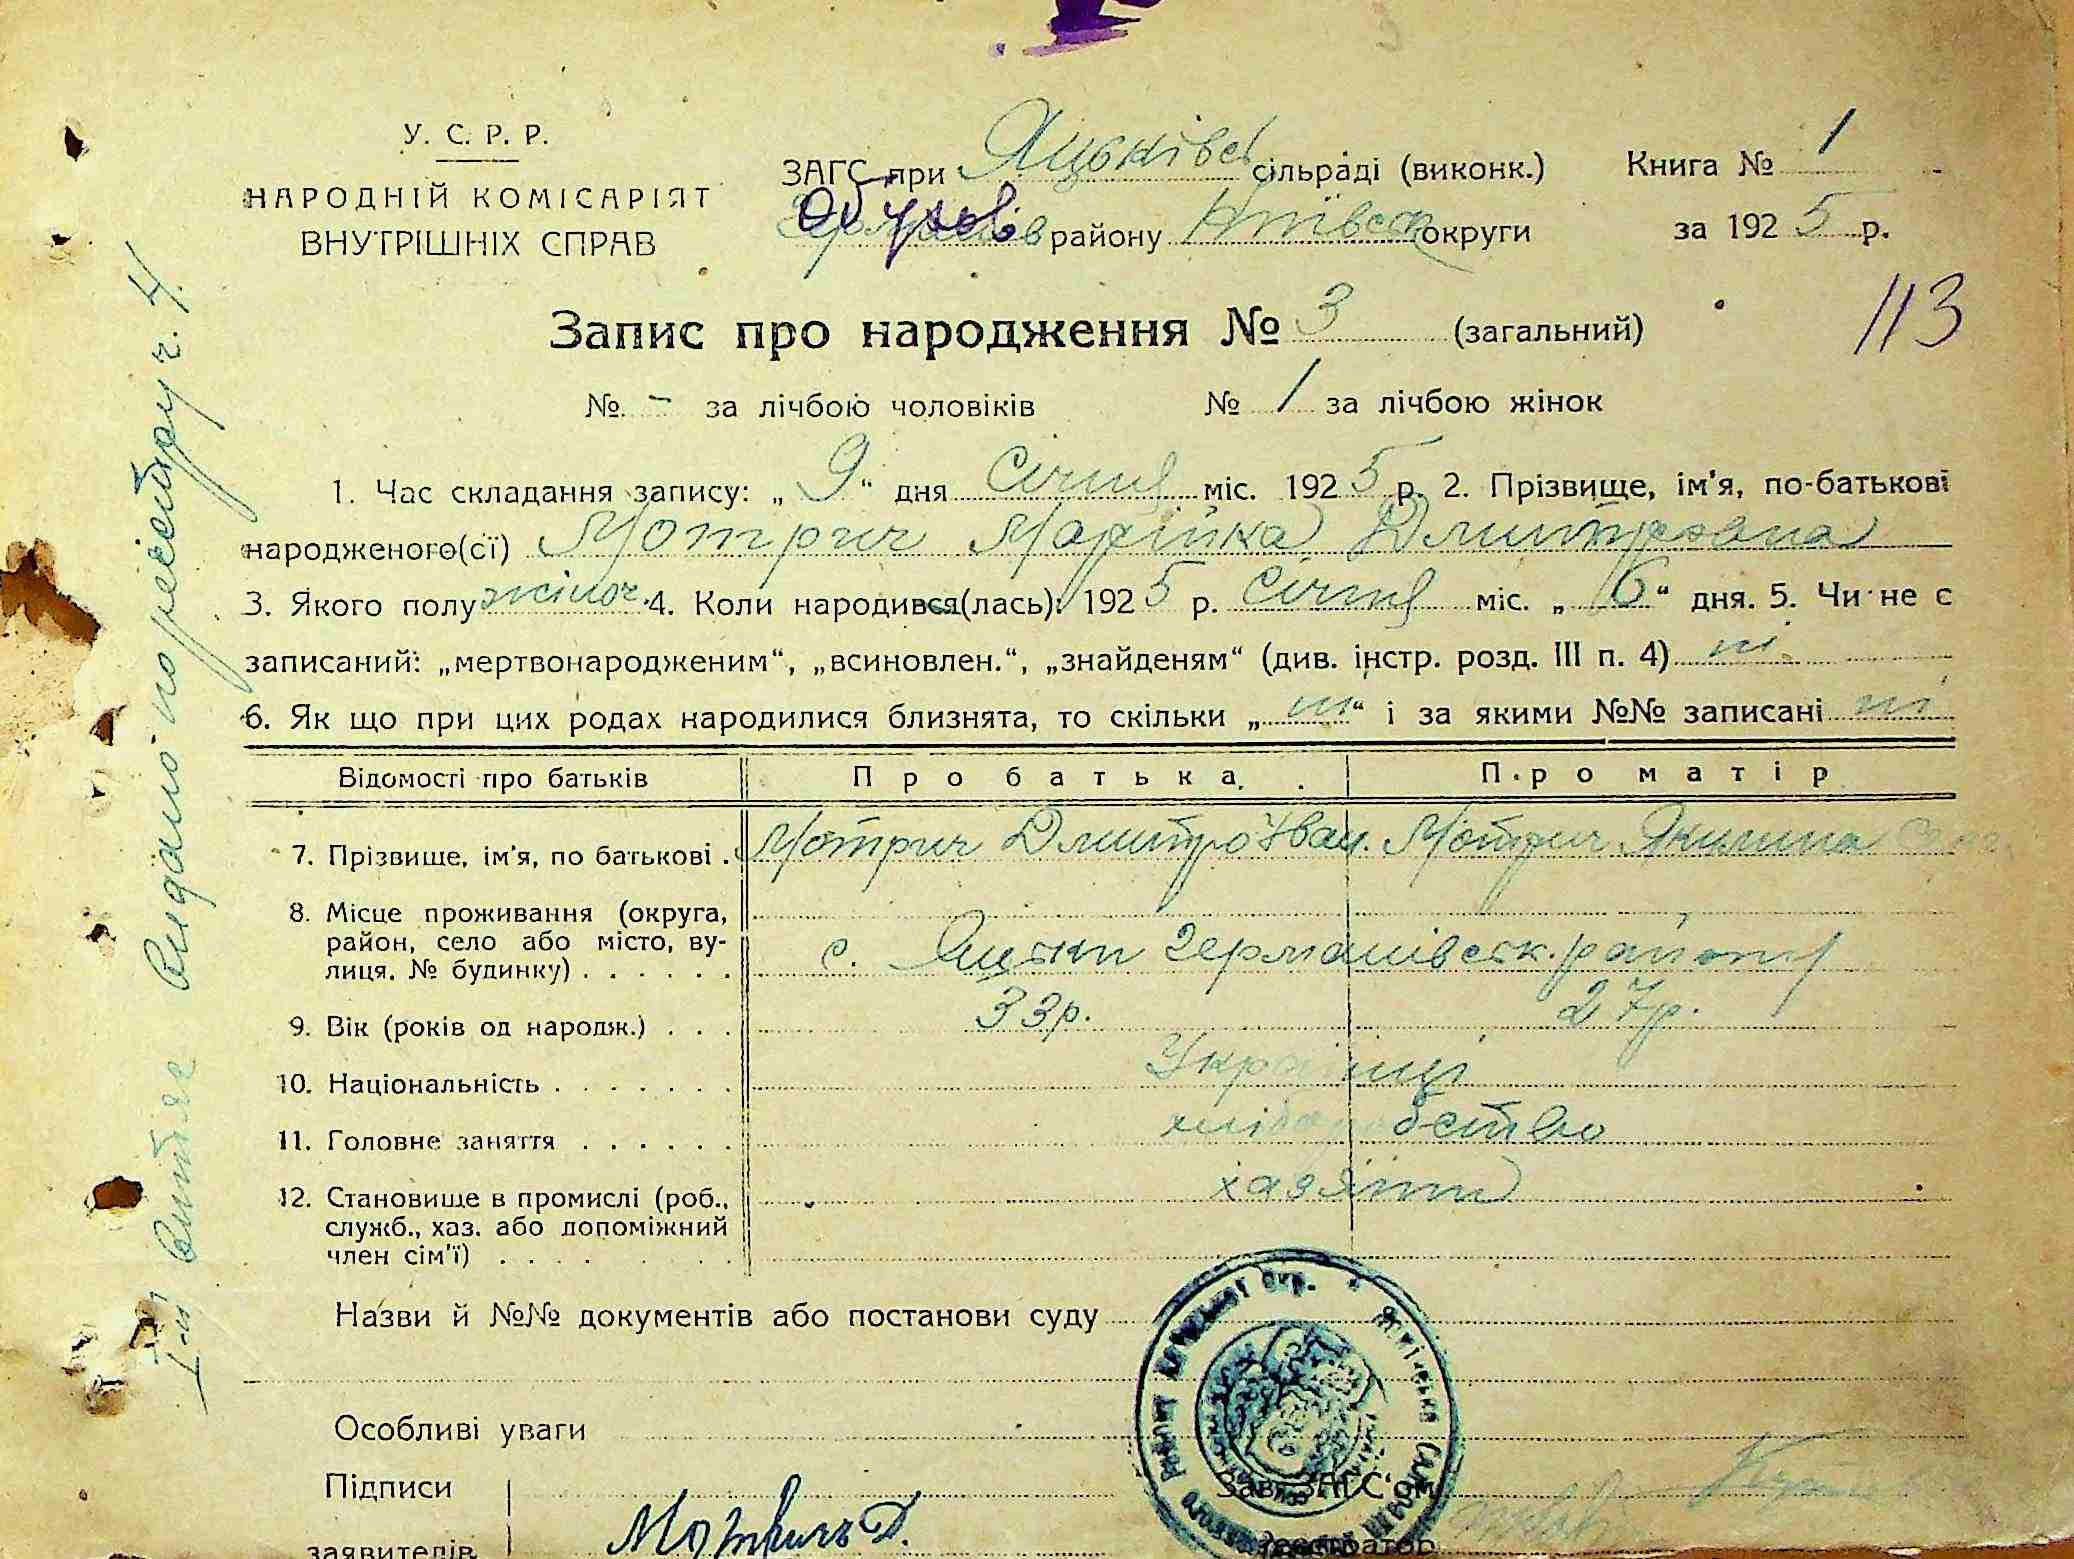 У. С. Р. Р.
НАРОДНІЙ КОМІСАРІЯТ
ВНУТРІШНІХ СПРАВ
ЗАГС при Яцьківс сільраді (виконк.)
району Київськ округи
Книга № 1
за 1925 р.
113
Запис про народження № 3 (загальний)
№ - за лічбою чоловіків № 1 за лічбою жінок
1. Час складання запису: „9“ дня Січня міс. 1925 р. 2. Прізвище, ім'я, по-батькові
народженого(сї) Мотрич Марійка Дмитровна
3. Якого полу жіноч. 4. Коли народився(лась): 1925 р. Січня міс. „6“ дня. 5. Чи не є
записаний: „мертвонародженим“, „всиновлен.“, „знайденям“ (див. інстр. розд. III п. 4) ні
6. Як що при цих родах народилися близнята, то скільки „ні“ і за якими №№ записані ні
Відомості про батьків Про батька Про матір
7. Прізвище, ім'я, по батькові . Мотрич Дмитро Іван. Мотрич Якилина
8. Місце проживання (округа,
район, село або місто, ву-
лиця, № будинку) . . . . . . с. Яцьки Германівськ. району
9. Вік (років од народж.) . . . 33р. 27р.
10. Національність . . . . . . . Українці
11. Головне заняття . . . . . . хліборобство
12. Становище в промислі (роб.,
служб., хаз. або допоміжний
член сім'ї) . . . . . . . хазяїни
Назви й №№ документів або постанови суду
Особливі уваги
Підписи
заявителів
Мотричъ Д.
Зав. ЗАГС'ом
Реєстратор
Витяг видано по реєстру ч. 4